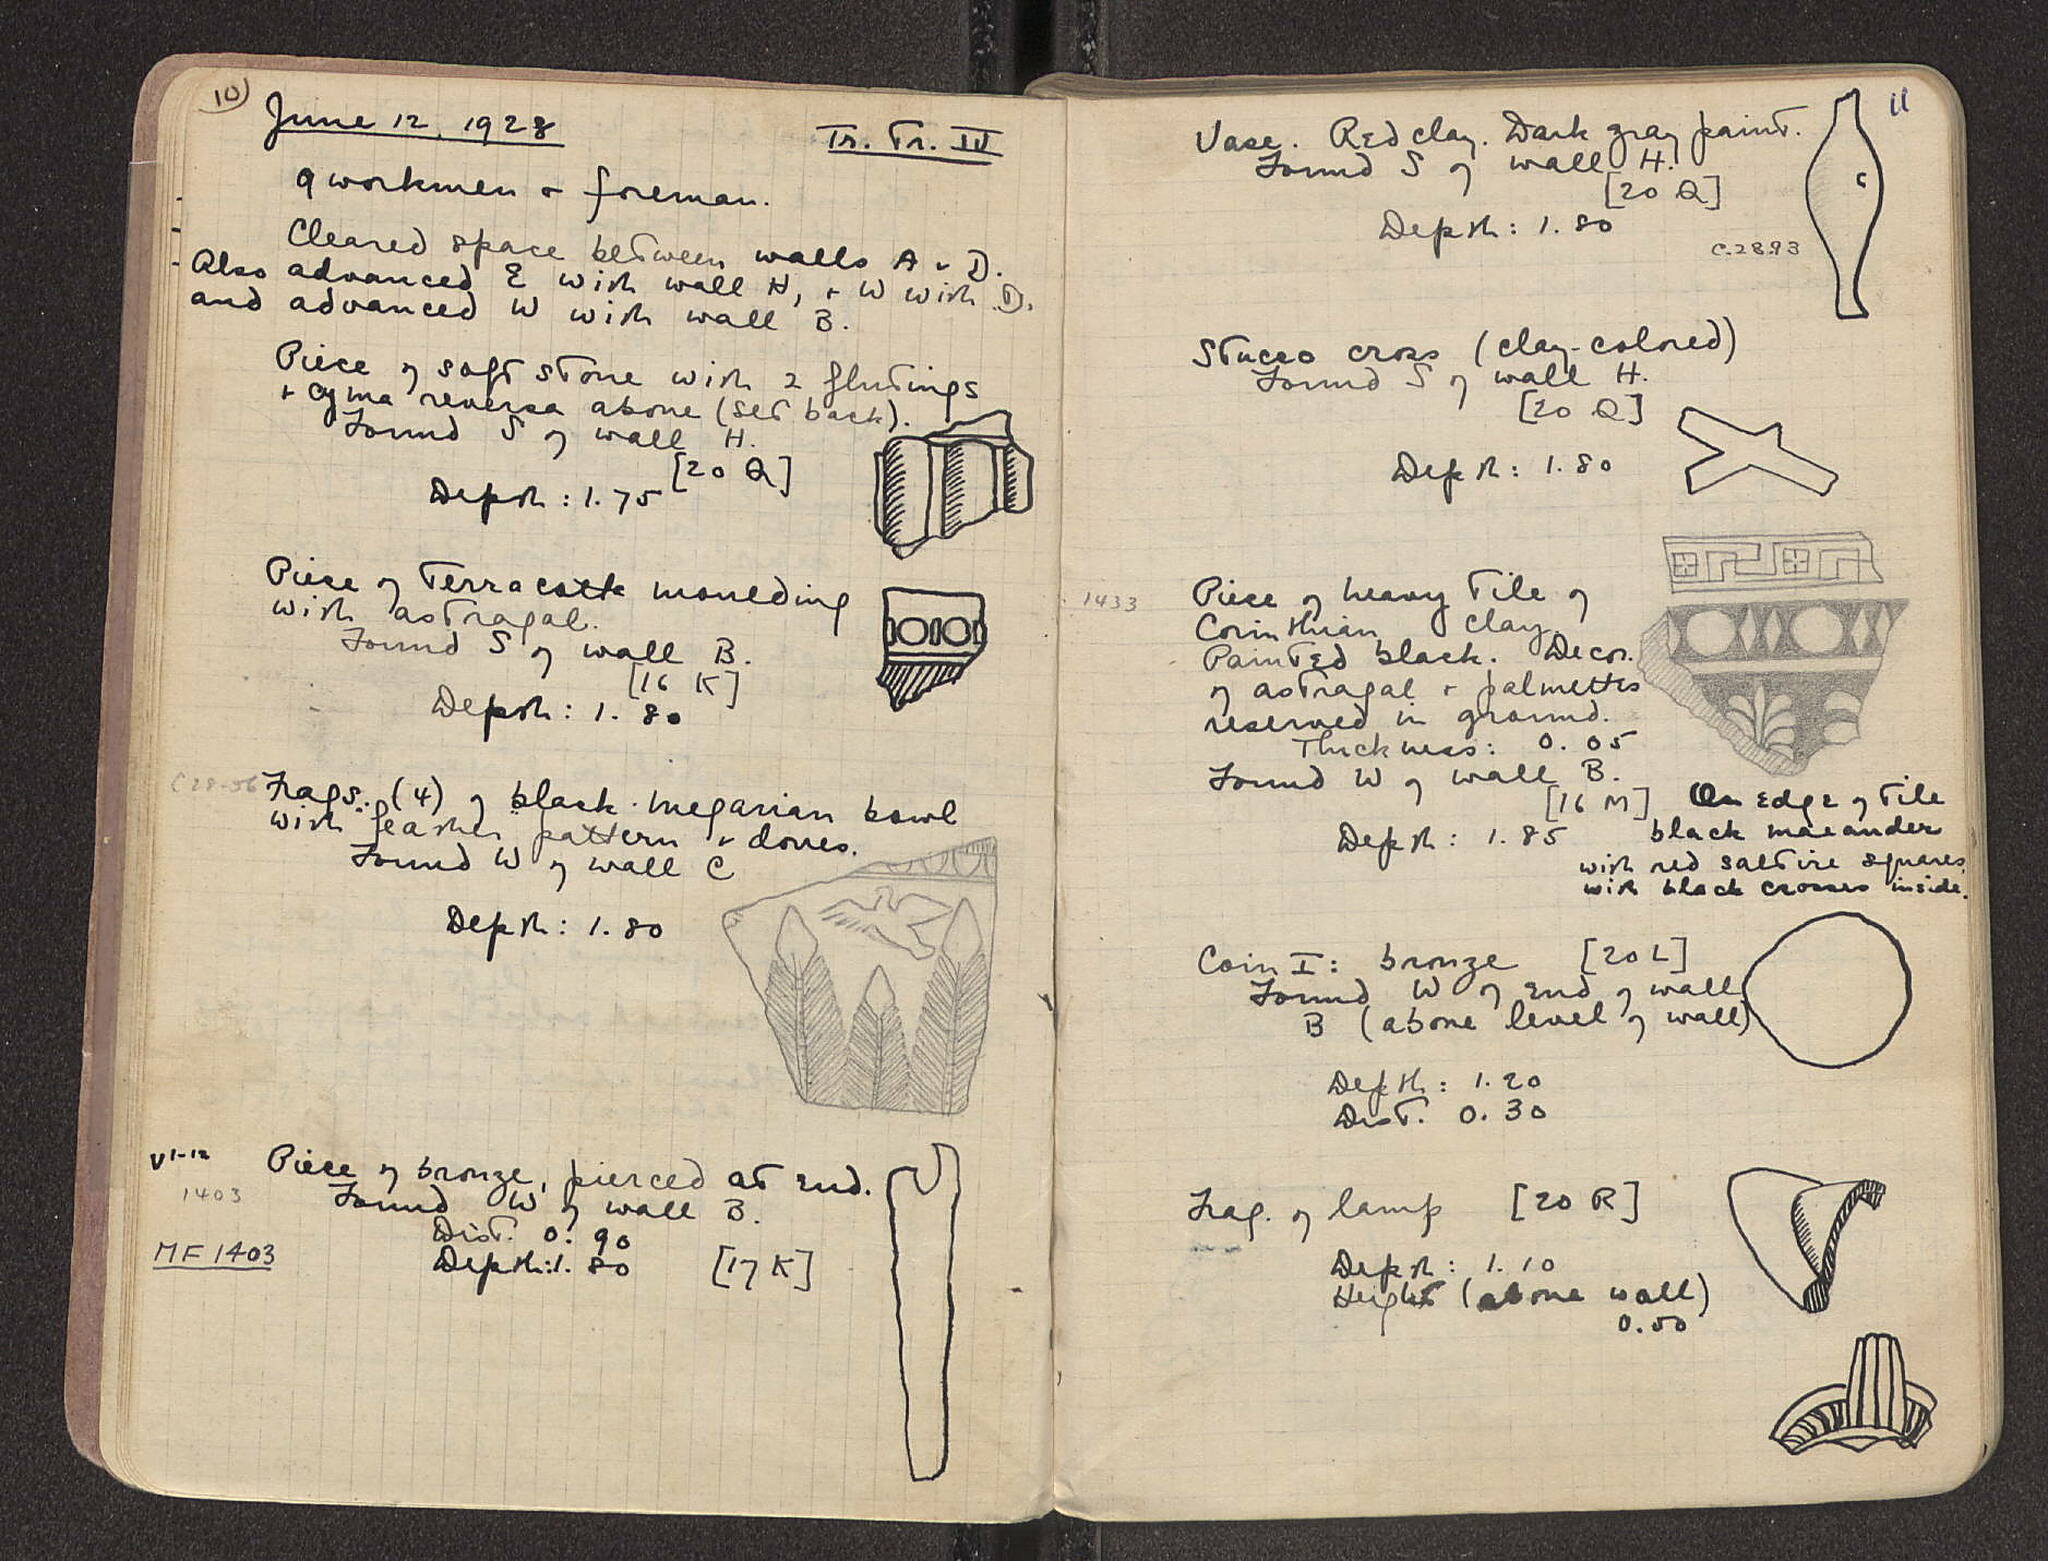 10)
June 12, 1928
Tr. Tr. IV
9 workmen + foreman.
Cleared space between walls A + D.
Also advanced E with wall H, + W with D.
and advanced W with wall B.
Piece of soft stone with 2 flutings
+ cyma reversa above (set back).
Found S of wall H.
[20 Q]
Depth: 1.75
Piece of terracotta moulding
with astragal.
Found S of wall B.
[16 K]
Depth: 1.80
C 28-56
Frags. (4) of black megarian bowl
with feather pattern + doves.
Found W of wall C
Depth: 1.80
V 1-12
1403
MF 1403
Piece of bronze, pierced at end.
Found W of wall B.
Dist. 0.90
Depth: 1.80 [17 K]
11
Vase. Red clay. Dark gray paint.
Found S of wall H.
[20 Q]
Depth: 1.80
C.28.93
Stucco cross (clay-colored)
Found S of wall H.
[20 Q]
Depth: 1.80
1433
Piece of heavy tile of
Corinthian clay.
Painted black. Decor.
of astragal + palmettes
reserved in ground.
Thickness: 0.05
Found W of wall B.
[16 M]
Depth: 1.85
On edge of tile
black maeander
with red saltire squares
with black crosses inside.
Coin I: bronze [20 L]
Found W of end of wall
B (above level of wall)
Depth: 1.20
Dist. 0.30
Frag. of lamp [20 R]
Depth: 1.10
Height (above wall)
0.50